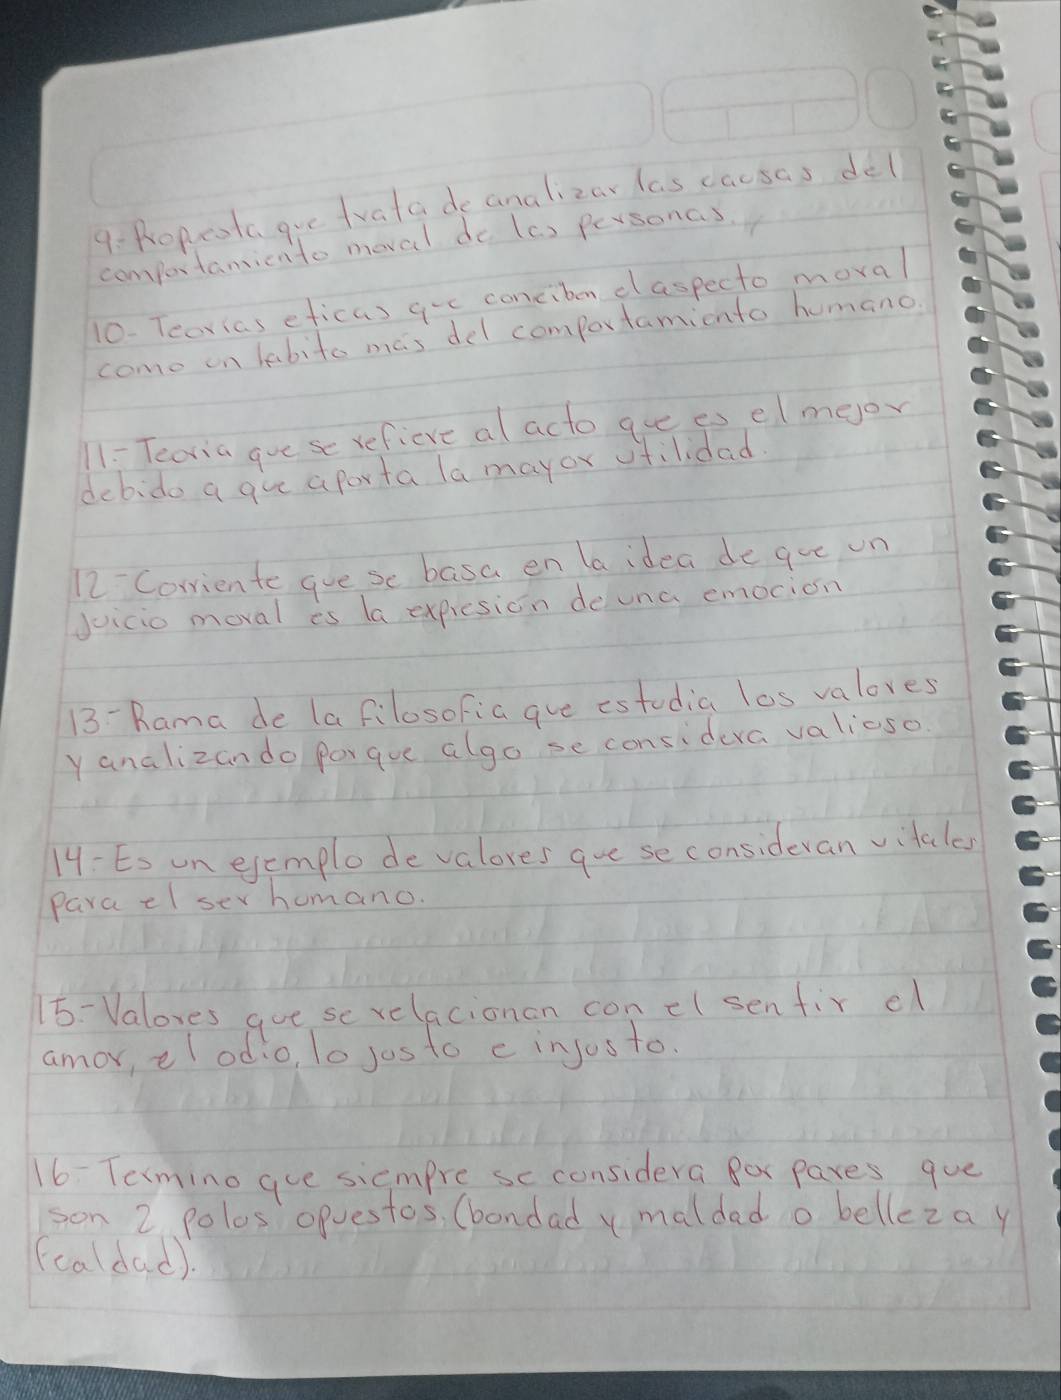 9.- Propuesta que trata de analizar las causas del
comportamiento moral de las personas.
10.- Teorias eticas que conciben el aspecto moral
como un habito más del comportamiento humano.
11.- Teoria que se refiere al acto que es el mejor
debido a que aporta la mayor utilidad.
12.- Corriente que se basa en la idea de que un
juicio moral es la expresión de una emocion
13.- Rama de la filosofia que estudia los valores
y analizando porque algo se considera valioso.
14.- Es un ejemplo de valores que se consideran vitales
para el ser humano.
15.- Valores que se relacionan con el sentir el
amor, el odio, lo justo e injusto.
16.- Termino que siempre se considera por pares que
son 2 polos opuestos. (bondad y maldad o belleza y
fealdad).